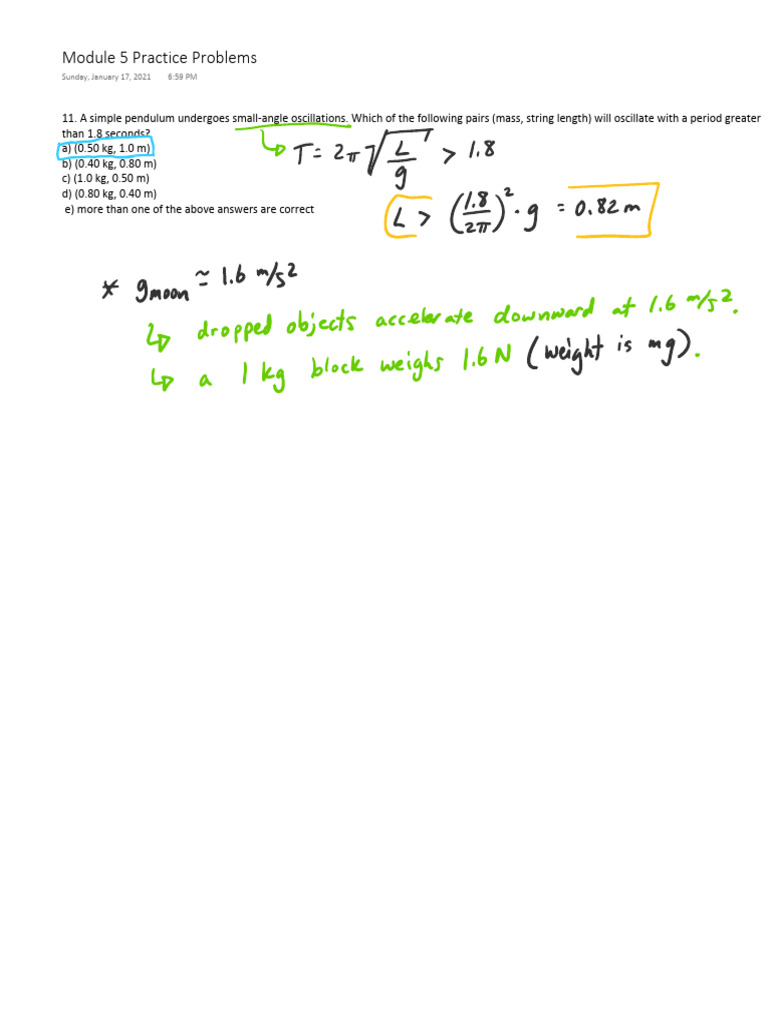 Module 5 Practice Problems
Sunday, January 17, 2021 6:59 PM
11. A simple pendulum undergoes small-angle oscillations. Which of the following pairs (mass, string length) will oscillate with a period greater
than 1.8 seconds?
a) (0.50 kg, 1.0 m)
b) (0.40 kg, 0.80 m)
c) (1.0 kg, 0.50 m)
d) (0.80 kg, 0.40 m)
e) more than one of the above answers are correct
T = 2π √(L/g) > 1.8
L > (1.8/2π)² · g = 0.82 m
* g moon ≃ 1.6 m/s²
↳ dropped objects accelerate downward at 1.6 m/s².
↳ a 1 kg block weighs 1.6 N (weight is mg).